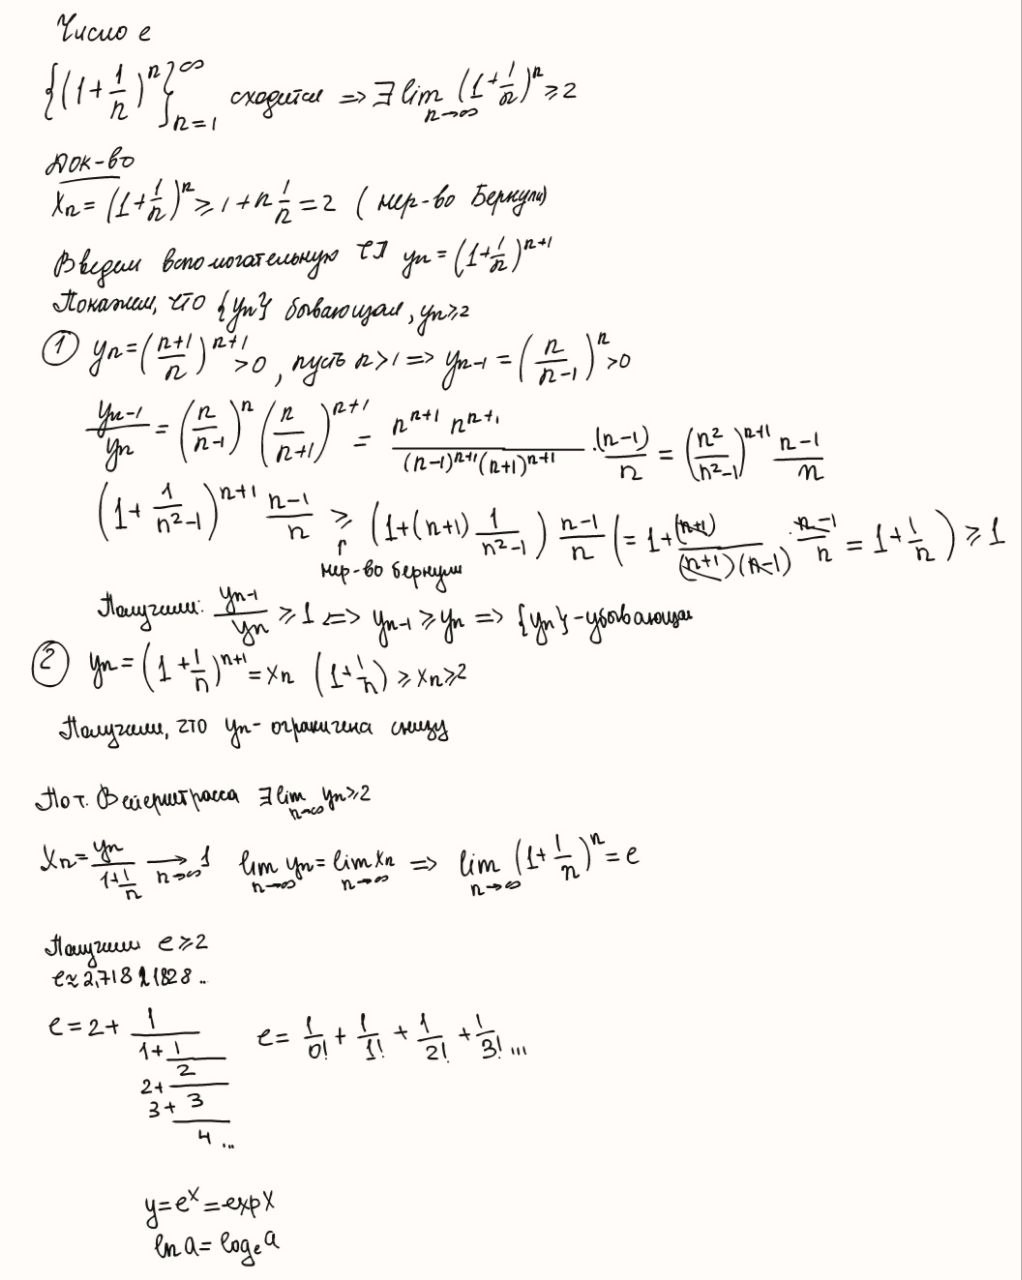 Число e
{(1+1/n)^n}_{n=1}^∞ сходится => ∃ lim_{n→∞} (1+1/n)^n ≥ 2
Док-во
Xn = (1+1/n)^n ≥ 1 + n 1/n = 2 (нер-во Бернули)
Введем вспомогательную ЧП yn = (1+1/n)^{n+1}
Покажем, что {yn} бывающая, yn≥2
① yn = ((n+1)/n)^{n+1} >0, пусть n>1 => y_{n-1} = (n/(n-1))^n >0
y_{n-1}/yn = (n/(n-1))^n (n/(n+1))^{n+1} = n^{n+1} n^{n+1} / ((n-1)^{n+1}(n+1)^{n+1}) · (n-1)/n = (n²/(n²-1))^{n+1} (n-1)/n
(1 + 1/(n²-1))^{n+1} (n-1)/n ≥ (1+(n+1) 1/(n²-1)) (n-1)/n (= 1+ (n+1)/((n+1)(n-1)) · (n-1)/n = 1+1/n) ≥ 1
нер-во бернули
Получили: y_{n-1}/yn ≥ 1 <=> y_{n-1} ≥ yn => {yn} - убывающая
② yn = (1+1/n)^{n+1} = Xn (1+1/n) ≥ Xn ≥ 2
Получили, что yn - ограничена снизу
По т. Вейерштрасса ∃ lim_{n→∞} yn ≥ 2
Xn = yn/(1+1/n) →_{n→∞} 1 lim_{n→∞} yn = lim_{n→∞} Xn => lim_{n→∞} (1+1/n)^n = e
Получили e ≥ 2
e ≈ 2,718 1828..
e = 2 + 1/(1+ 1/(2+ 2/(3+ 3/(4...)))) e = 1/0! + 1/1! + 1/2! + 1/3! ...
y = e^x = exp x
ln a = log_e a